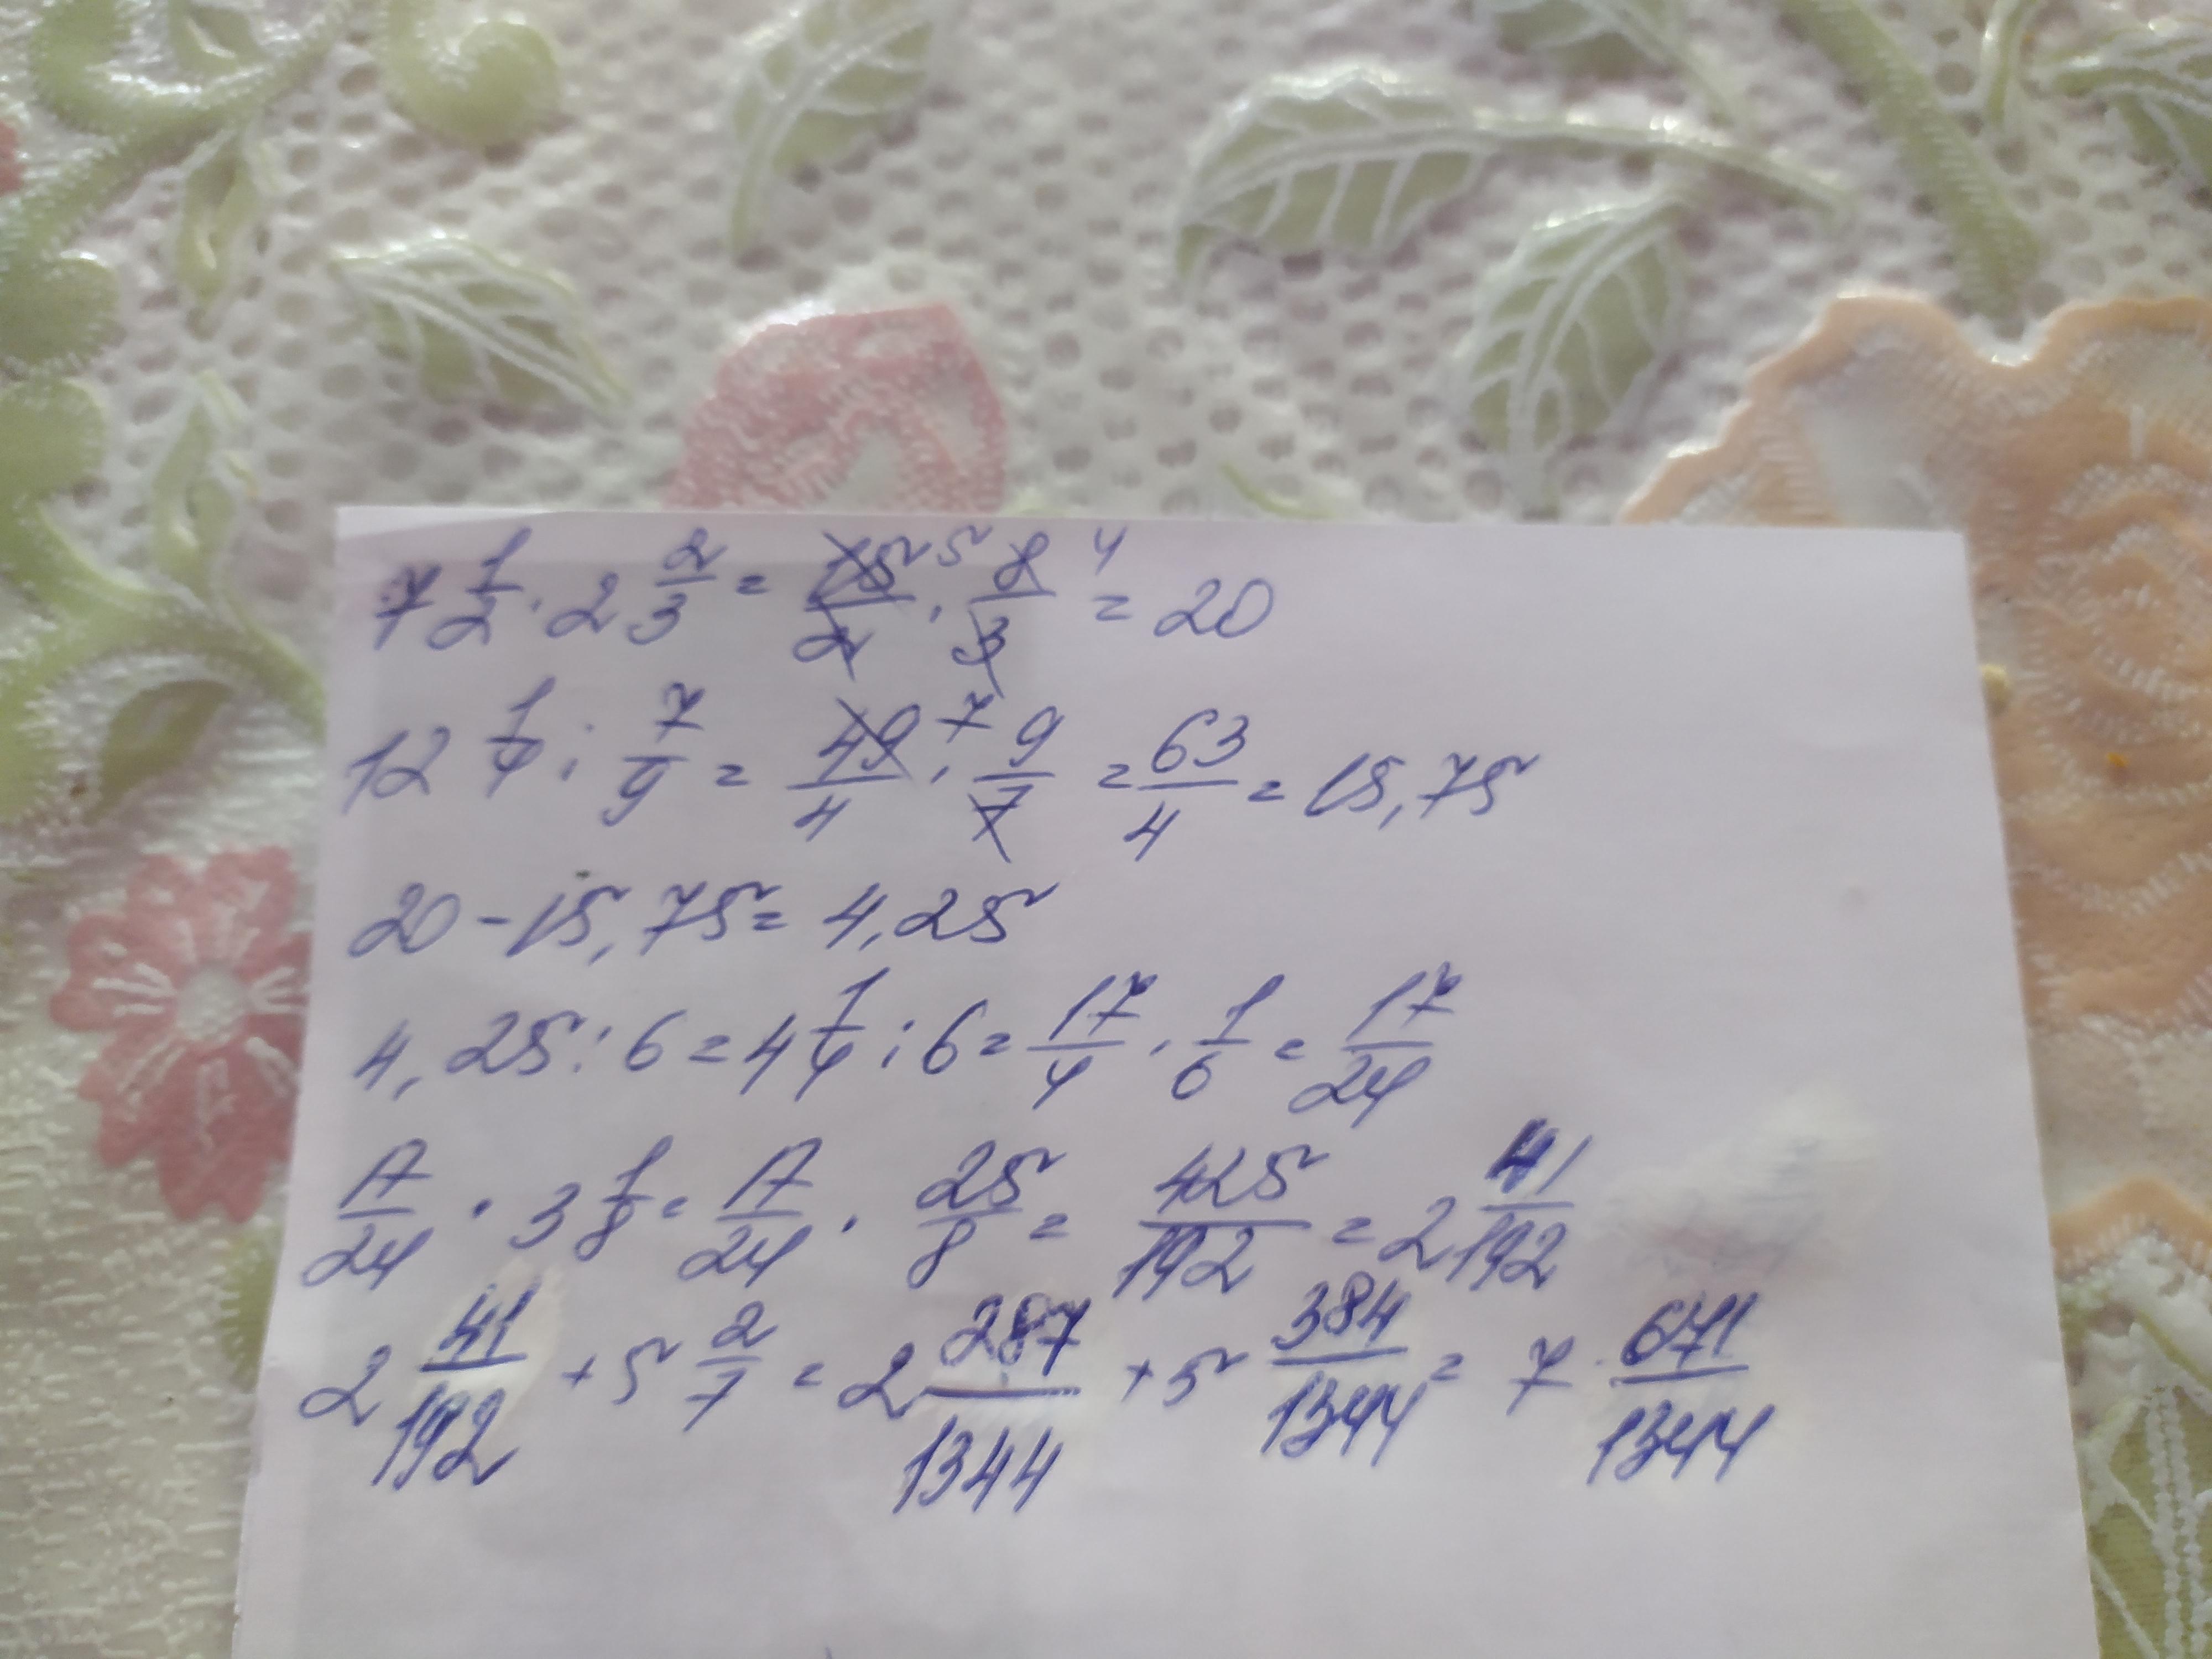 7 1/2 · 2 2/3 = 15/2 5 · 8/3 4 = 20
12 1/4 : 7/9 = 49/4 7 · 9/7 = 63/4 = 15,75
20 - 15,75 = 4,25
4,25 : 6 = 4 1/4 : 6 = 17/4 · 1/6 = 17/24
17/24 · 3 1/8 = 17/24 · 25/8 = 425/192 = 2 41/192
2 41/192 + 5 2/7 = 2 287/1344 + 5 384/1344 = 7 671/1344